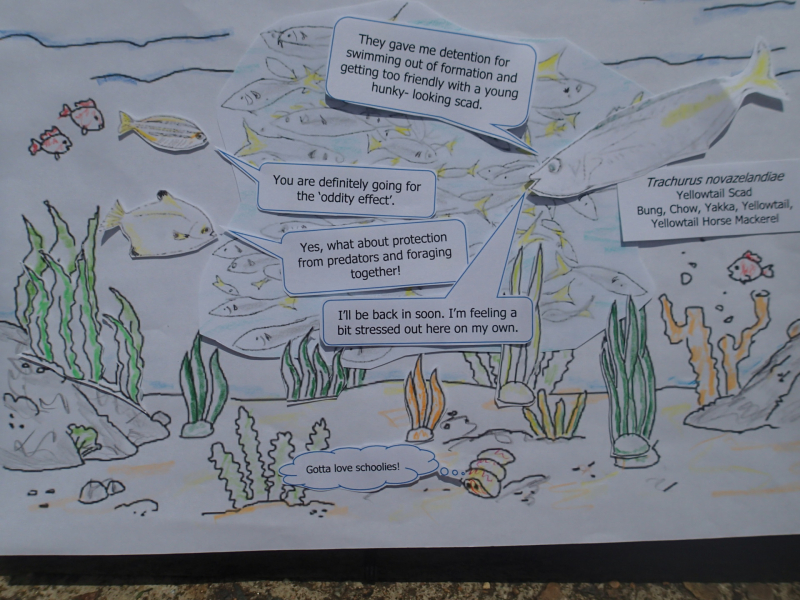 They gave me detention for
swimming out of formation and
getting too friendly with a young
hunky- looking scad.
You are definitely going for
the 'oddity effect'.
Trachurus novazelandiae
Yellowtail Scad
Bung, Chow, Yakka, Yellowtail,
Yellowtail Horse Mackerel
Yes, what about protection
from predators and foraging
together!
I'll be back in soon. I'm feeling a
bit stressed out here on my own.
Gotta love schoolies!